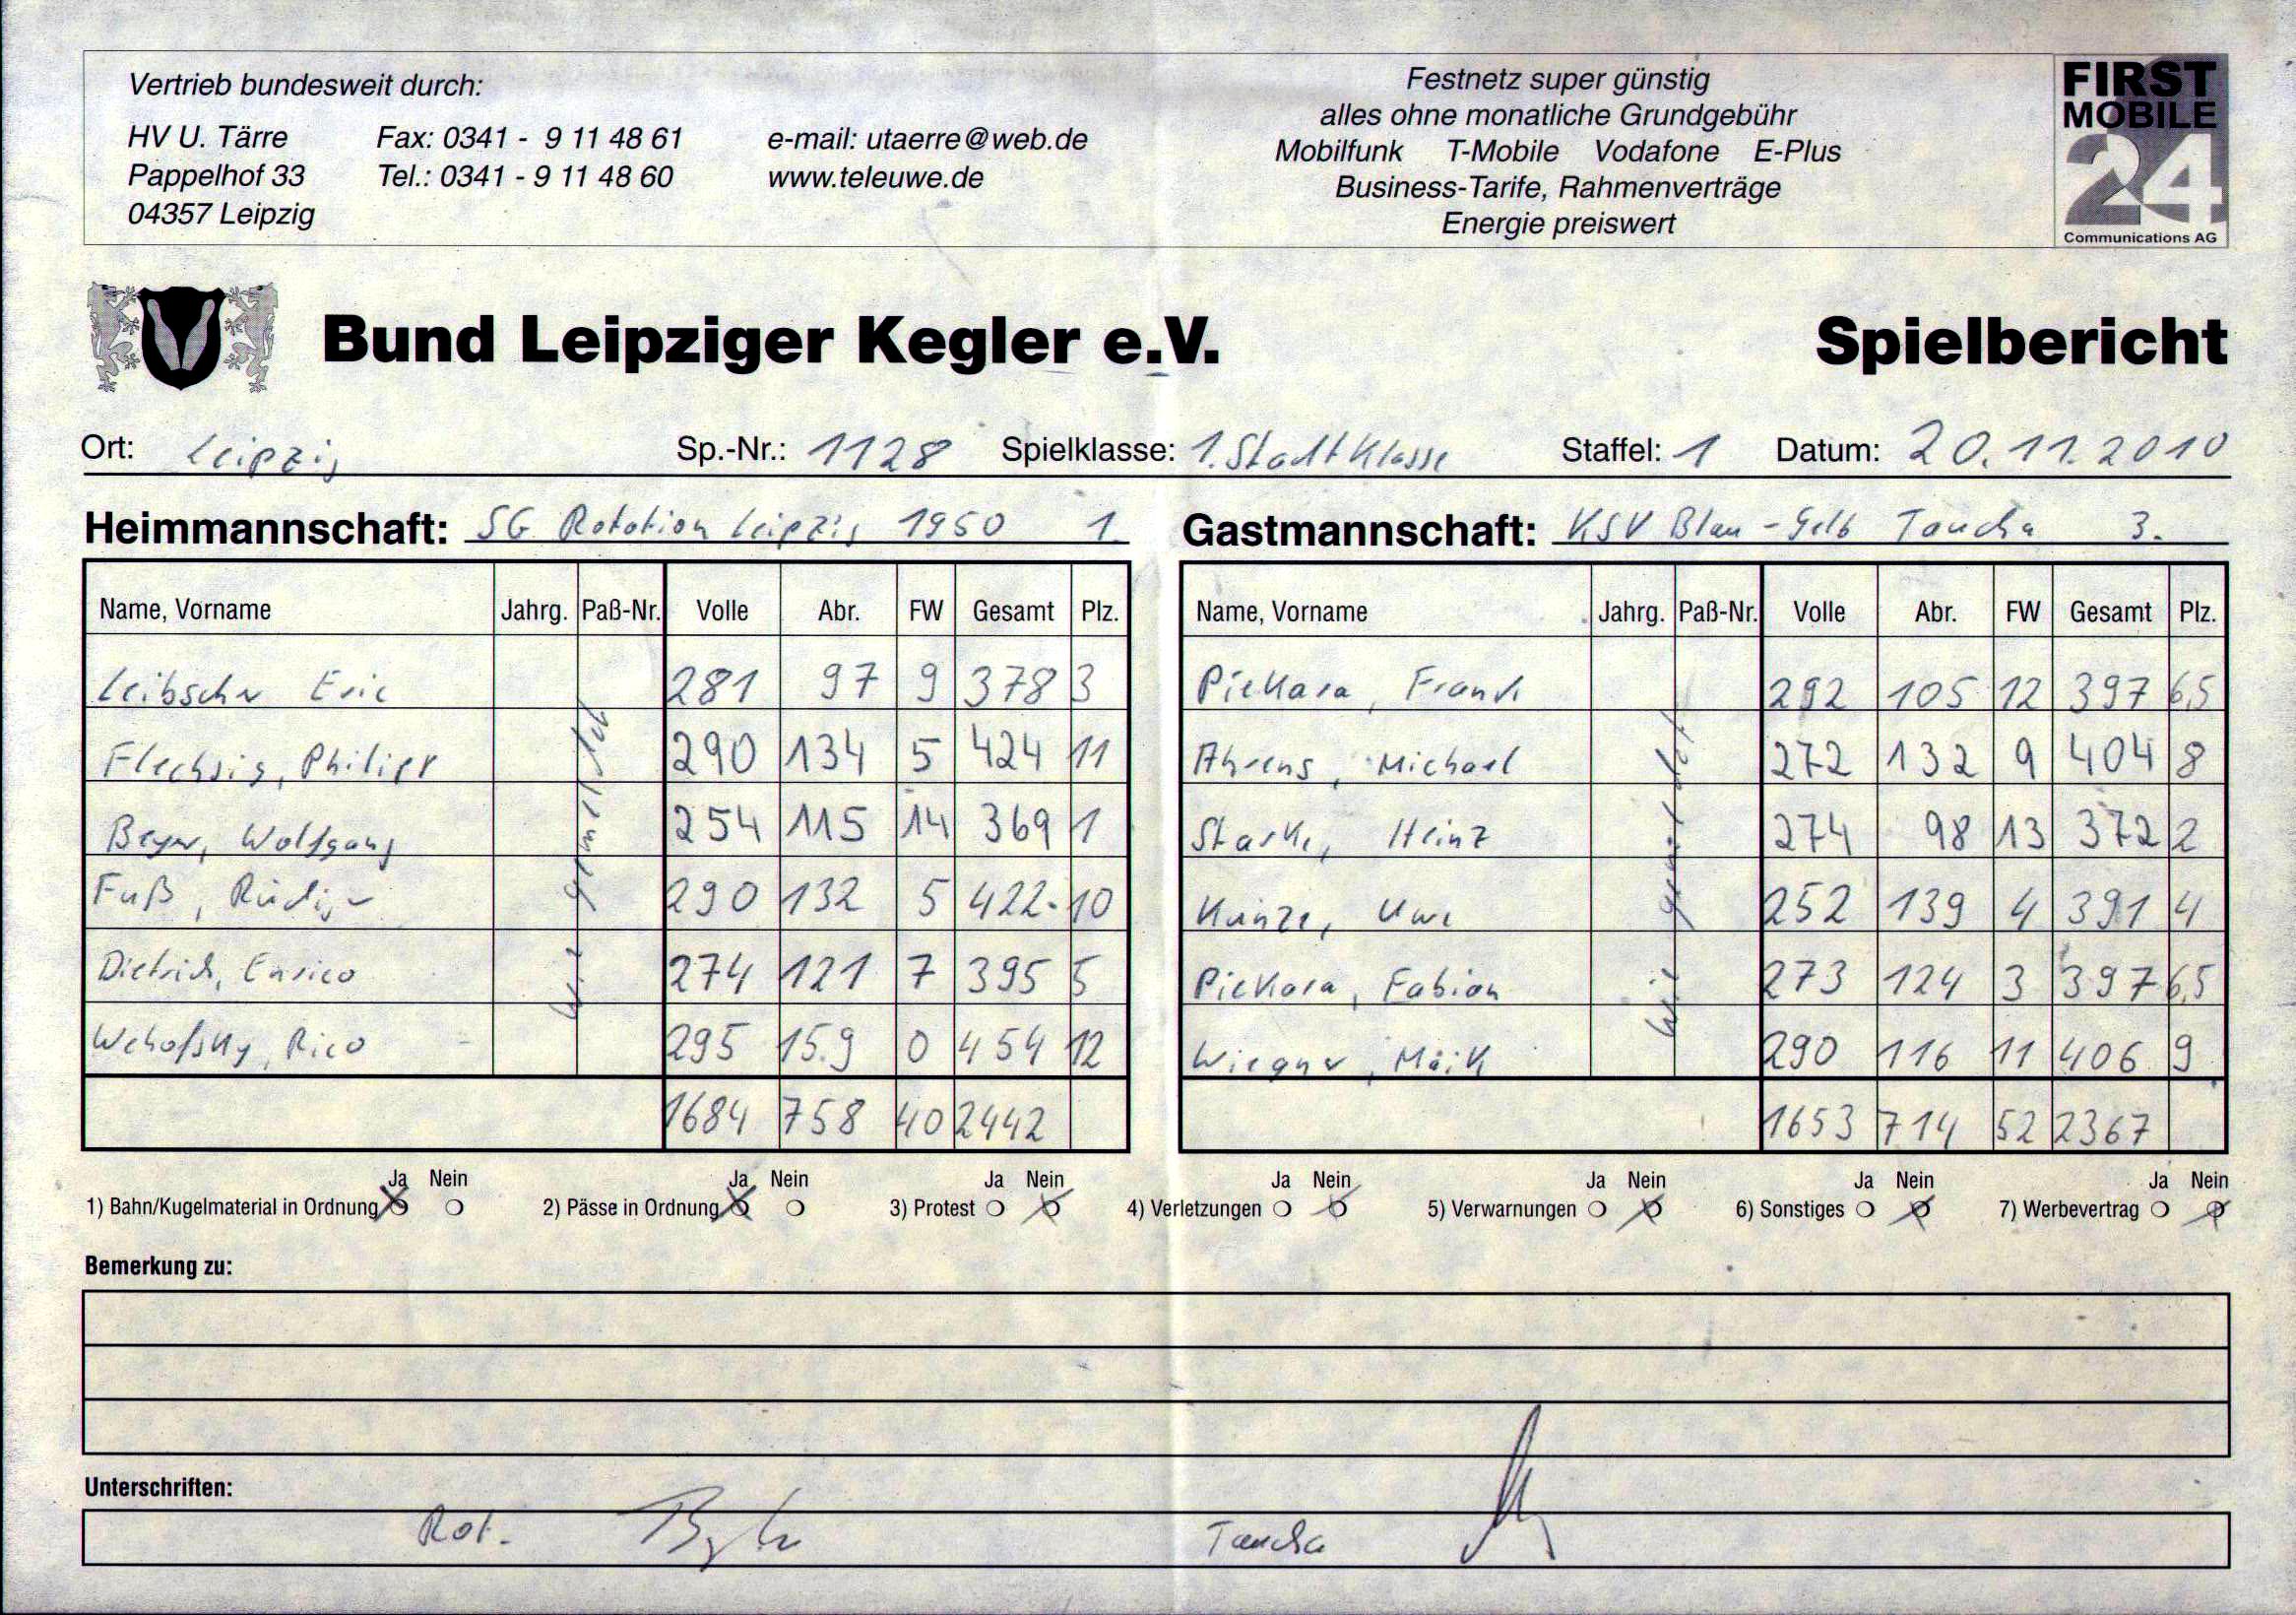 Vertrieb bundesweit durch:
HV U. Tärre Fax: 0341 - 9 11 48 61 e-mail: utaerre@web.de
Pappelhof 33 Tel.: 0341 - 9 11 48 60 www.teleuwe.de
04357 Leipzig
Festnetz super günstig
alles ohne monatliche Grundgebühr
Mobilfunk T-Mobile Vodafone E-Plus
Business-Tarife, Rahmenverträge
Energie preiswert
FIRST
MOBILE
24
Communications AG
Bund Leipziger Kegler e.V. Spielbericht
Ort: Leipzig Sp.-Nr.: 1128 Spielklasse: 1. Stadtklasse Staffel: 1 Datum: 20.11.2010
Heimmannschaft: SG Rotation Leipzig 1950 1.
Name, Vorname Jahrg. Paß-Nr. Volle Abr. FW Gesamt Plz.
Leibschr Eric 281 97 9 378 3
Flechsig, Philipp 290 134 5 424 11
Beyer, Wolfgang 254 115 14 369 1
Fuß, Rüdiger 290 132 5 422 10
Dietrich, Enrico 274 121 7 395 5
Wehofsky, Rico 295 159 0 454 12
wie gemeldet
1684 758 40 2442
Gastmannschaft: KSV Blau-Gelb Taucha 3.
Name, Vorname Jahrg. Paß-Nr. Volle Abr. FW Gesamt Plz.
Piekara, Frank 292 105 12 397 6,5
Ahrens, Michael 272 132 9 404 8
Starke, Heinz 274 98 13 372 2
Kunze, Uwe 252 139 4 391 4
Piekara, Fabian 273 124 3 397 6,5
Wiegner, Maik 290 116 11 406 9
wie gemeldet
1653 714 52 2367
1) Bahn/Kugelmaterial in Ordnung Ja Nein 2) Pässe in Ordnung Ja Nein 3) Protest Ja Nein 4) Verletzungen Ja Nein 5) Verwarnungen Ja Nein 6) Sonstiges Ja Nein 7) Werbevertrag Ja Nein
Bemerkung zu:
Unterschriften:
Rot. Taucha